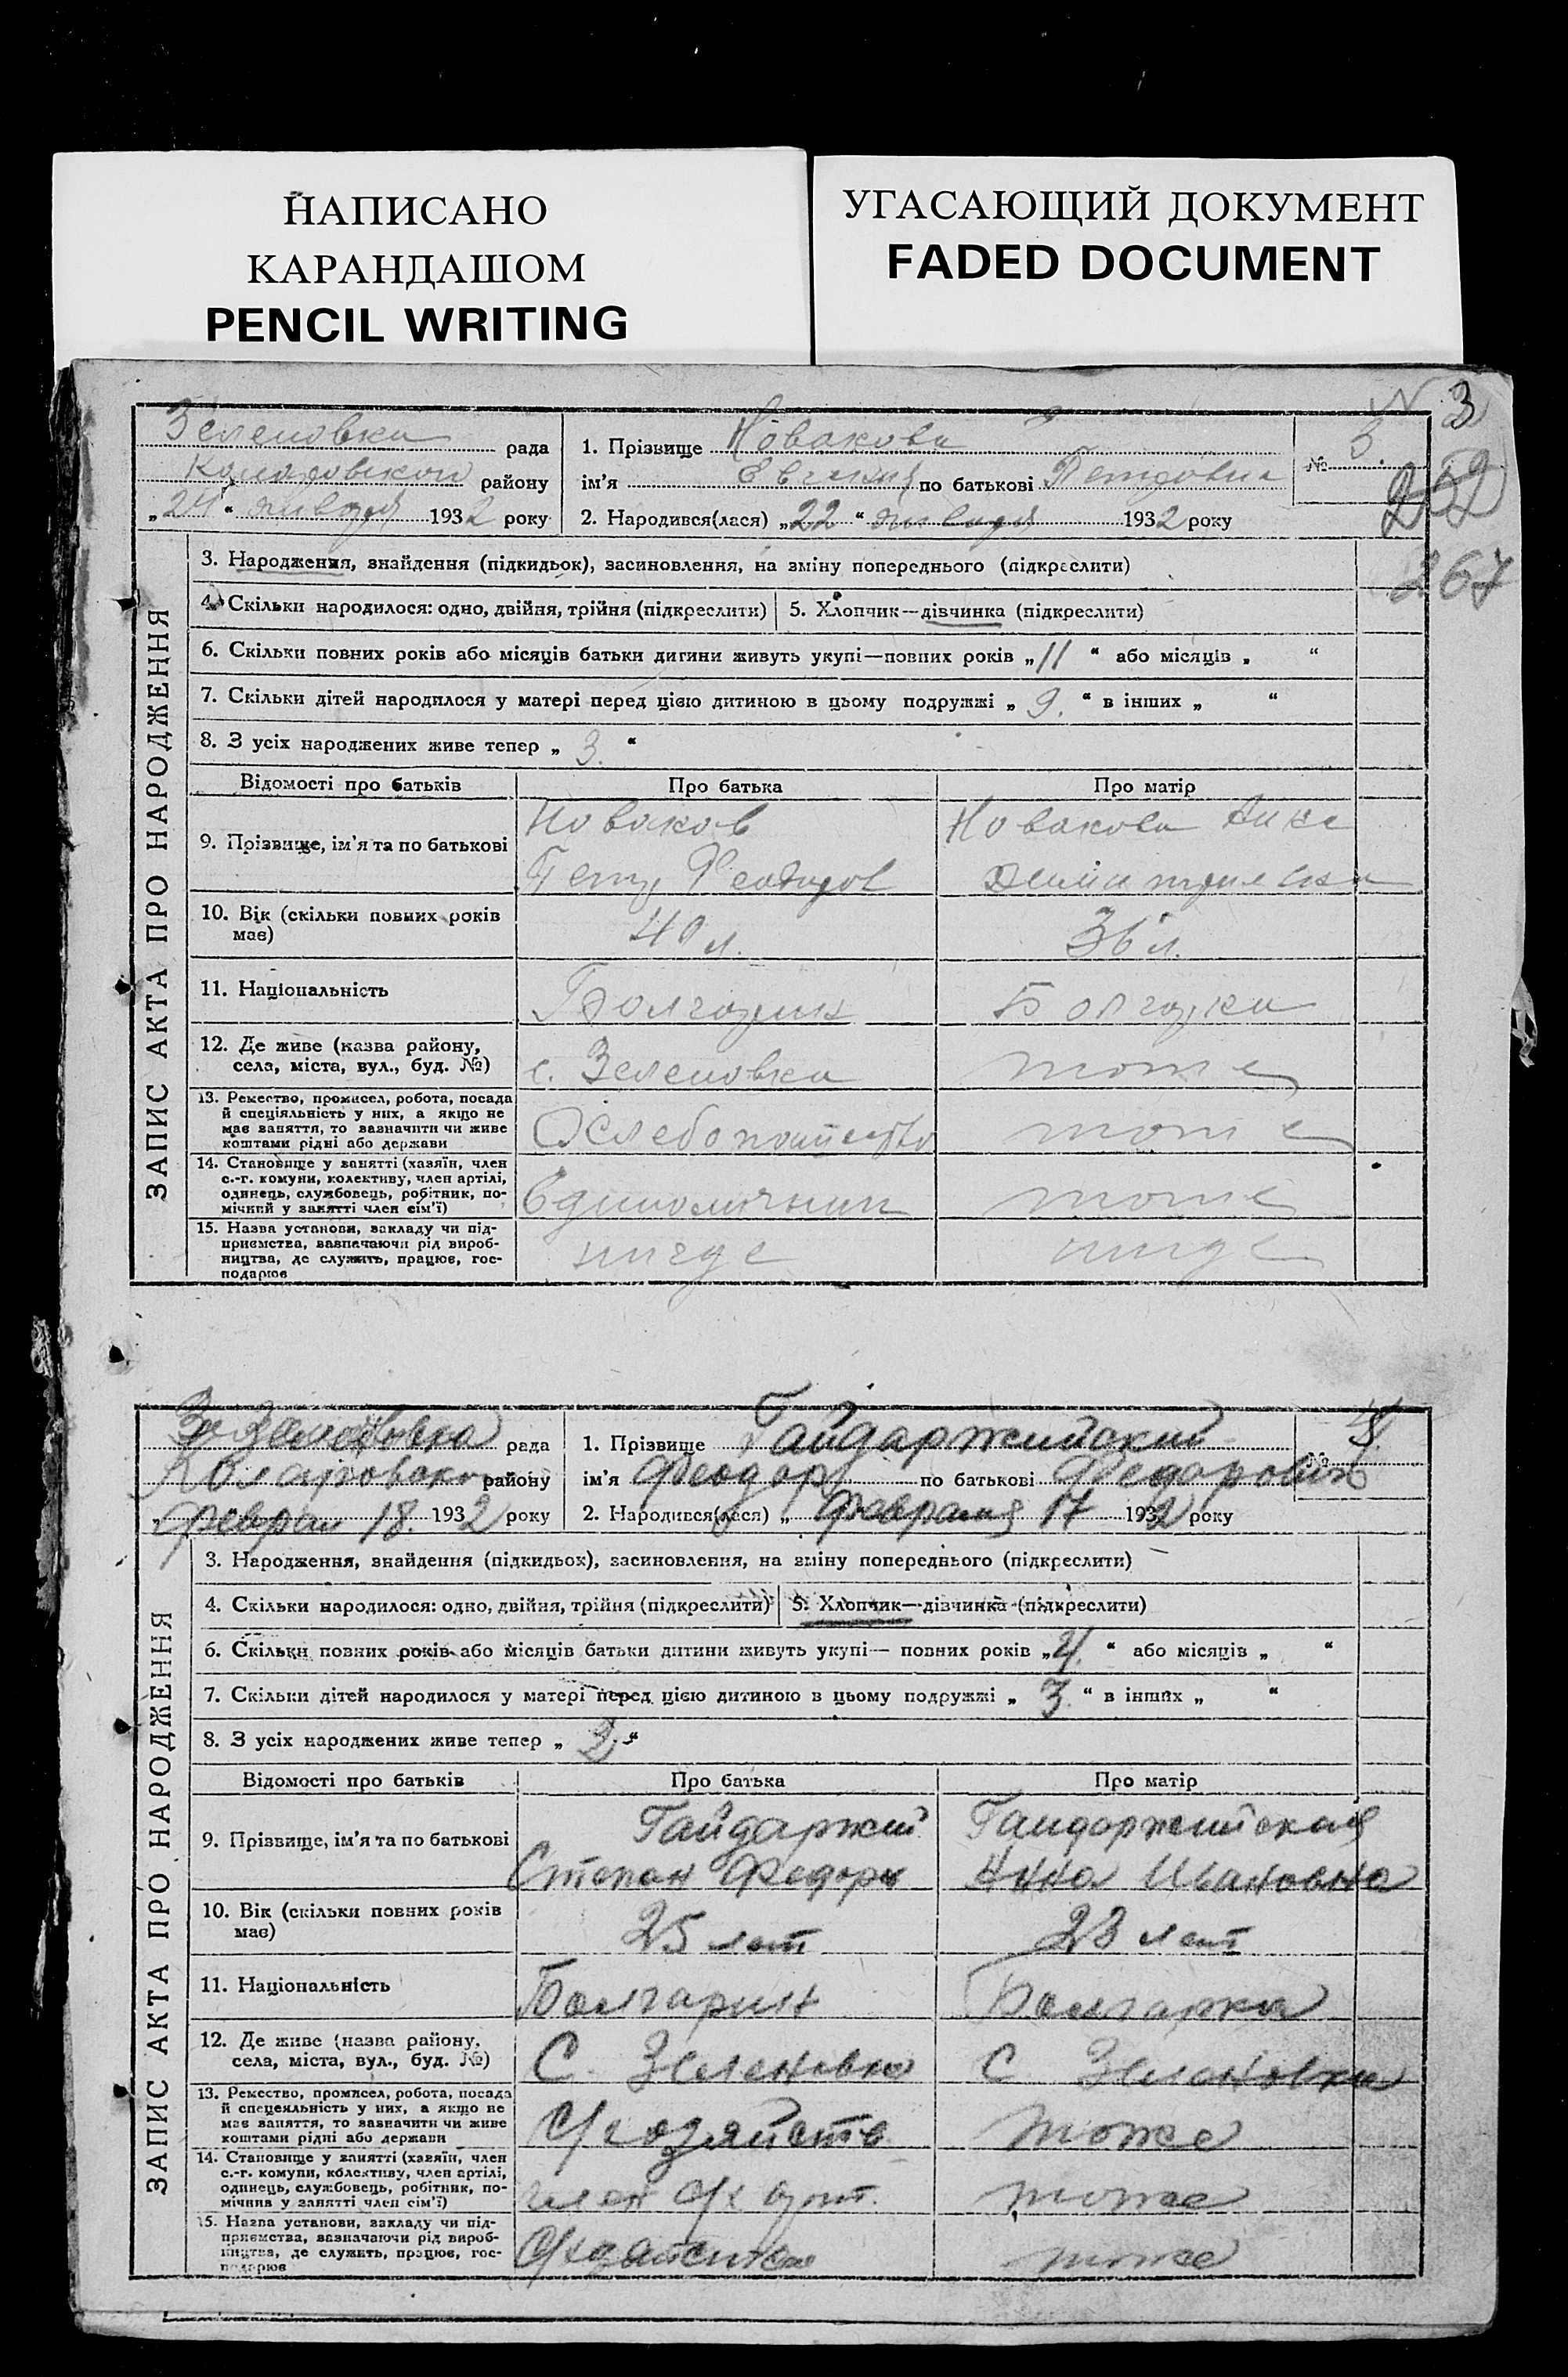 НАПИСАНО
КАРАНДАШОМ
PENCIL WRITING
УГАСАЮЩИЙ ДОКУМЕНТ
FADED DOCUMENT
N 3
252
267
Зеленовка рада
району
„24“ января 1932 року
1. Прізвище Новакова
ім'я Евгения по батькові Петровна
2. Народився(лася) „22“ января 1932 року
№ 3.
ЗАПИС АКТА ПРО НАРОДЖЕННЯ
3. Народження, знайдення (підкидьок), засиновлення, на зміну попереднього (підкреслити)
4. Скільки народилося: одно, двійня, трійня (підкреслити) 5. Хлопчик—дівчинка (підкреслити)
6. Скільки повних років або місяців батьки дитини живуть укупі—повних років „11“ або місяців „ “
7. Скільки дітей народилося у матері перед цією дитиною в цьому подружжі „9.“ в інших „ “
8. З усіх народжених живе тепер „3.“
Відомості про батьків Про батька Про матір
9. Прізвище, ім'я та по батькові
Новаков
Петр Феодоров
Новакова
10. Вік (скільки повних років має)
40 л. 36 л.
11. Національність
Болгарин Болгарка
12. Де живе (казва району, села, міста, вул., буд. №)
с. Зеленовка тоже
13. Ремество, промисел, робота, посада
й спеціяльність у них, а якщо не
має заняття, то зазначити чи живе
коштами рідні або держави
тоже
14. Становище у занятті (хазяїн, член
с.-г. комуни, колективу, член артілі,
одинець, службовець, робітник, по-
мічний у занятті член сім'ї)
Единоличник тоже
15. Назва установи, закладу чи під-
приємства, зазначаючи рід вироб-
ництва, де служить, працює, гос-
подарює
нигде нигде
Зеленовка рада
Коларовского району
Феврал 18. 1932 року
1. Прізвище Гайдаржийский
ім'я Феодор по батькові Федорович
2. Народився(лася) „ Февраля 17 1932 року
№ 4.
ЗАПИС АКТА ПРО НАРОДЖЕННЯ
3. Народження, знайдення (підкидьок), засиновлення, на зміну попереднього (підкреслити)
4. Скільки народилося: одно, двійня, трійня (підкреслити) 5. Хлопчик—дівчинка (підкреслити)
6. Скільки повних років або місяців батьки дитини живуть укупі— повних років „4.“ або місяців „ “
7. Скільки дітей народилося у матері перед цією дитиною в цьому подружжі „3.“ в інших „ “
8. З усіх народжених живе тепер „2.“
Відомості про батьків Про батька Про матір
9. Прізвище, ім'я та по батькові
Гайдаржий
Степан Федоров
Гайдаржийская
Анна Ивановна
10. Вік (скільки повних років має)
25 лет 23 лет
11. Національність
Болгарин Болгарка
12. Де живе (назва району, села, міста, вул., буд. №)
С Зеленовка С Зеленовка
13. Ремество, промисел, робота, посада
й спецеяльність у них, а якщо не
має заняття, то зазначити чи живе
коштами рідні або держави
тоже
14. Становище у занятті (хазяїн, член
с.-г. комуни, колективу, член артілі,
одинець, службовець, робітник, по-
мічник у занятті член сім'ї)
член тоже
15. Назва установи, закладу чи під-
приємства, зазначаючи рід вироб-
ництва, де служить, працює, гос-
подарює
тоже